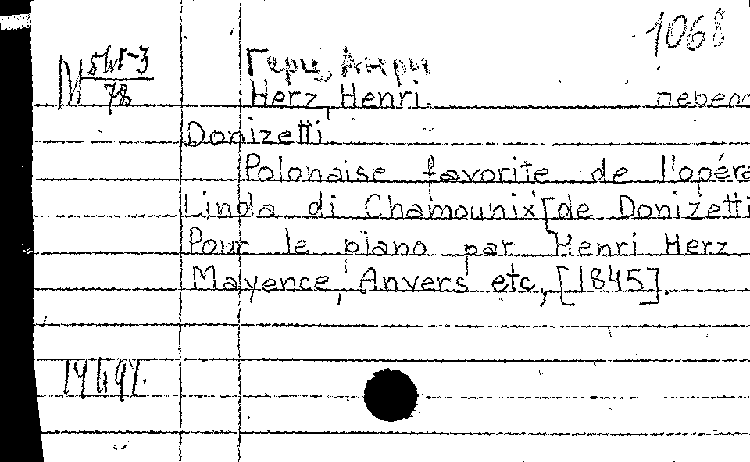 1068
Герц, Анри
Herz, Henri.
Donizetti.
Polonaise favorite de l'opéra
Linda di Chamounix [de Donizetti
Pour le piano par Henri Herz
Mayence, Anvers etc, [1845].